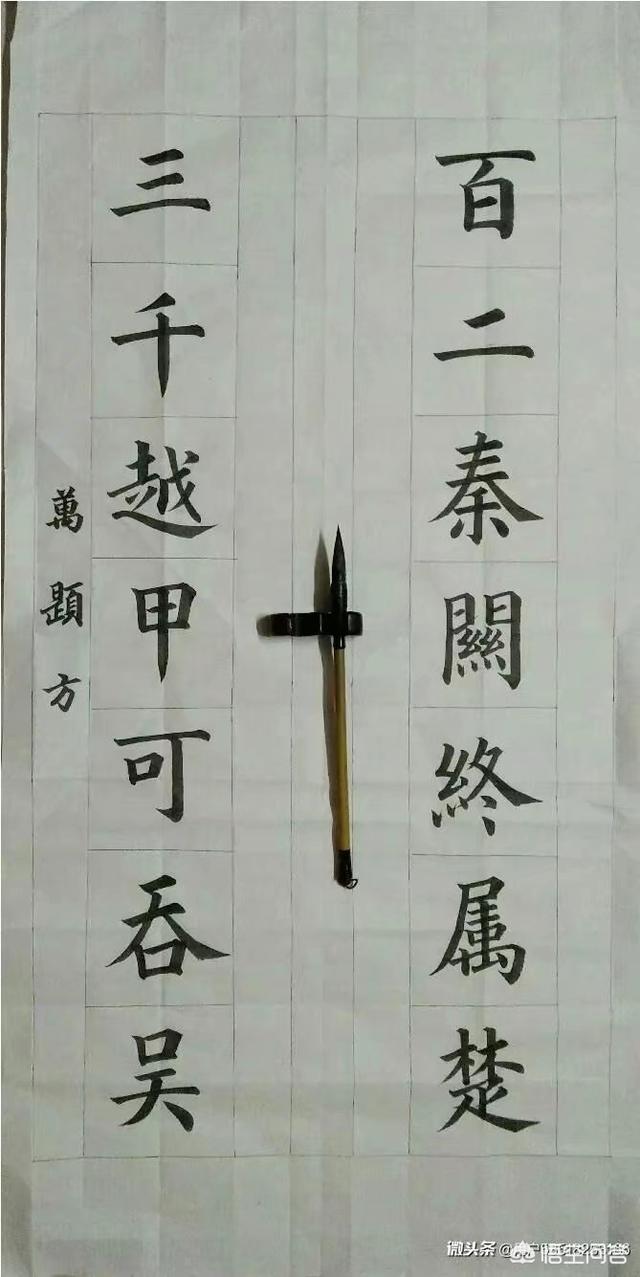 百二秦關終属楚
三千越甲可吞吴
萬題方
微头条
悟空问答